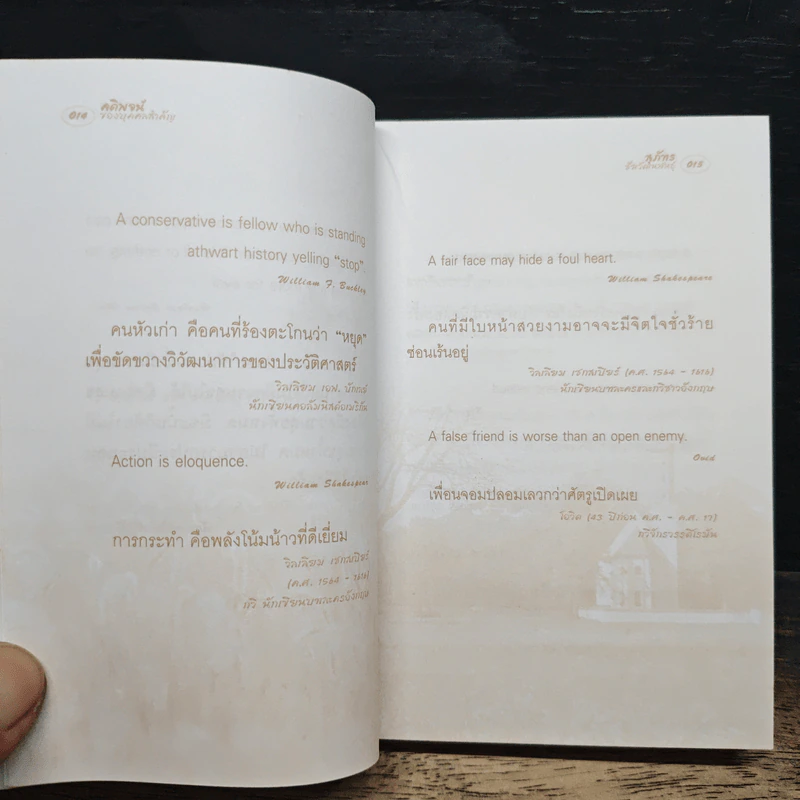 014 คติพจน์
ของบุคคลสำคัญ
A conservative is fellow who is standing
athwart history yelling “stop”.
William F. Buckley
คนหัวเก่า คือคนที่ร้องตะโกนว่า “หยุด”
เพื่อขัดขวางวิวัฒนาการของประวัติศาสตร์
วิลเลียม เอฟ. บักเลย์
นักเขียนคอลัมนิสต์อเมริกัน
Action is eloquence.
William Shakespear
การกระทำ คือพลังโน้มน้าวที่ดีเยี่ยม
วิลเลียม เชกสเปียร์
(ค.ศ. 1564 - 1616)
กวี นักเขียนบทละครอังกฤษ
015
A fair face may hide a foul heart.
William Shakespeare
คนที่มีใบหน้าสวยงามอาจจะมีจิตใจชั่วร้าย
ซ่อนเร้นอยู่
วิลเลียม เชกสเปียร์ (ค.ศ. 1564 - 1616)
นักเขียนบทละครและกวีชาวอังกฤษ
A false friend is worse than an open enemy.
Ovid
เพื่อนจอมปลอมเลวกว่าศัตรูเปิดเผย
โอวิด (43 ปีก่อน ค.ศ. - ค.ศ. 17)
กวีจักรวรรดิโรมัน